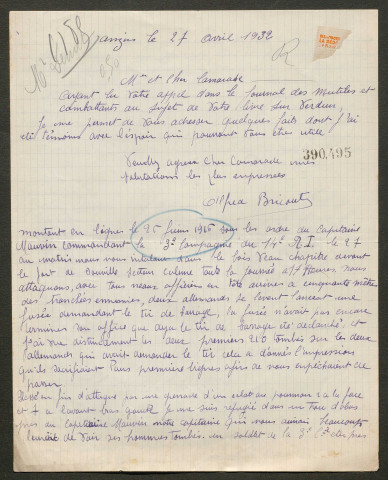 le 27 avril 1932
Mr et Cher Camarade
Ayant lu votre appel dans le Journal des Mutilés et
combattants au sujet de votre livre sur Verdun,
Je me permet de vous adresser quelques faits dont j'ai
été témoins avec l'espoir qui pourront vous être utile
Veuillez agréer Cher Camarade mes
salutations les plus empressées
390,495
Alfred Bricout
montant en lignes le 25 juin 1916 sous les ordre du Capitaine
Mauvin commandant la 3e Compagnie du 14e R.I. le 27
au matin nous nous dans le bois Vaux chapitre devant
le fort de Souville toute la journée à 17 Heures nous
attaquons, avec tous nos officiers en tête arrivés a cinquante mètre
des tranchées ennemies, deux allemands se levant lancent une
fusée demandant le tir de barrage, la fusée n'avait pas encore
terminés son office que deja le tir de barrage se declanche et
j'ai vue distinctement les deux premiers 210 tombés sur les deux
allemands qui avait demander le tir cela a donnés l'impression
qu'ils sacrifiaient leurs premiers lignes afin de nous empêchaient de
passer
fus d'attaques par une d'un eclat au poumon a la face
et a l'avant bras gauche je me suis réfugié dans un trou d'obus
près du capitaine Mauvin notre capitaine qui nous aimait beaucoup
de voir ses hommes tombés. un soldat de la 3e Cie